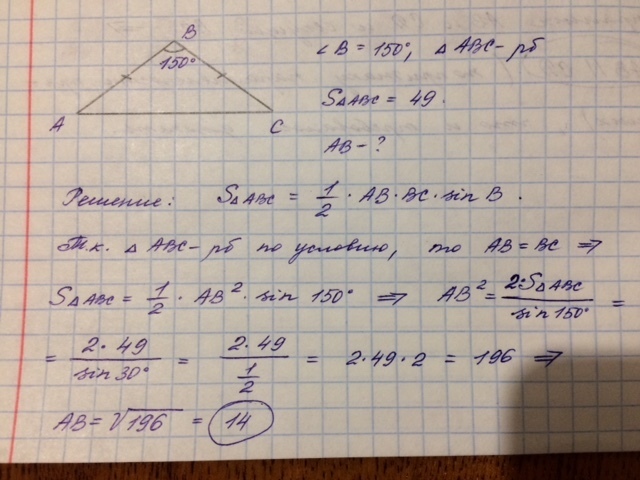 B
150°
A
C
∠B = 150°, △ABC - рб
S△ABC = 49.
AB - ?
Решение: S△ABC = 1/2 · AB · BC · sin B.
Т.к. △ABC - рб по условию, то AB = BC ⇒
S△ABC = 1/2 · AB² · sin 150° ⇒ AB² = 2·S△ABC / sin 150° =
= 2·49 / sin 30° = 2·49 / 1/2 = 2·49·2 = 196 ⇒
AB = √196 = 14